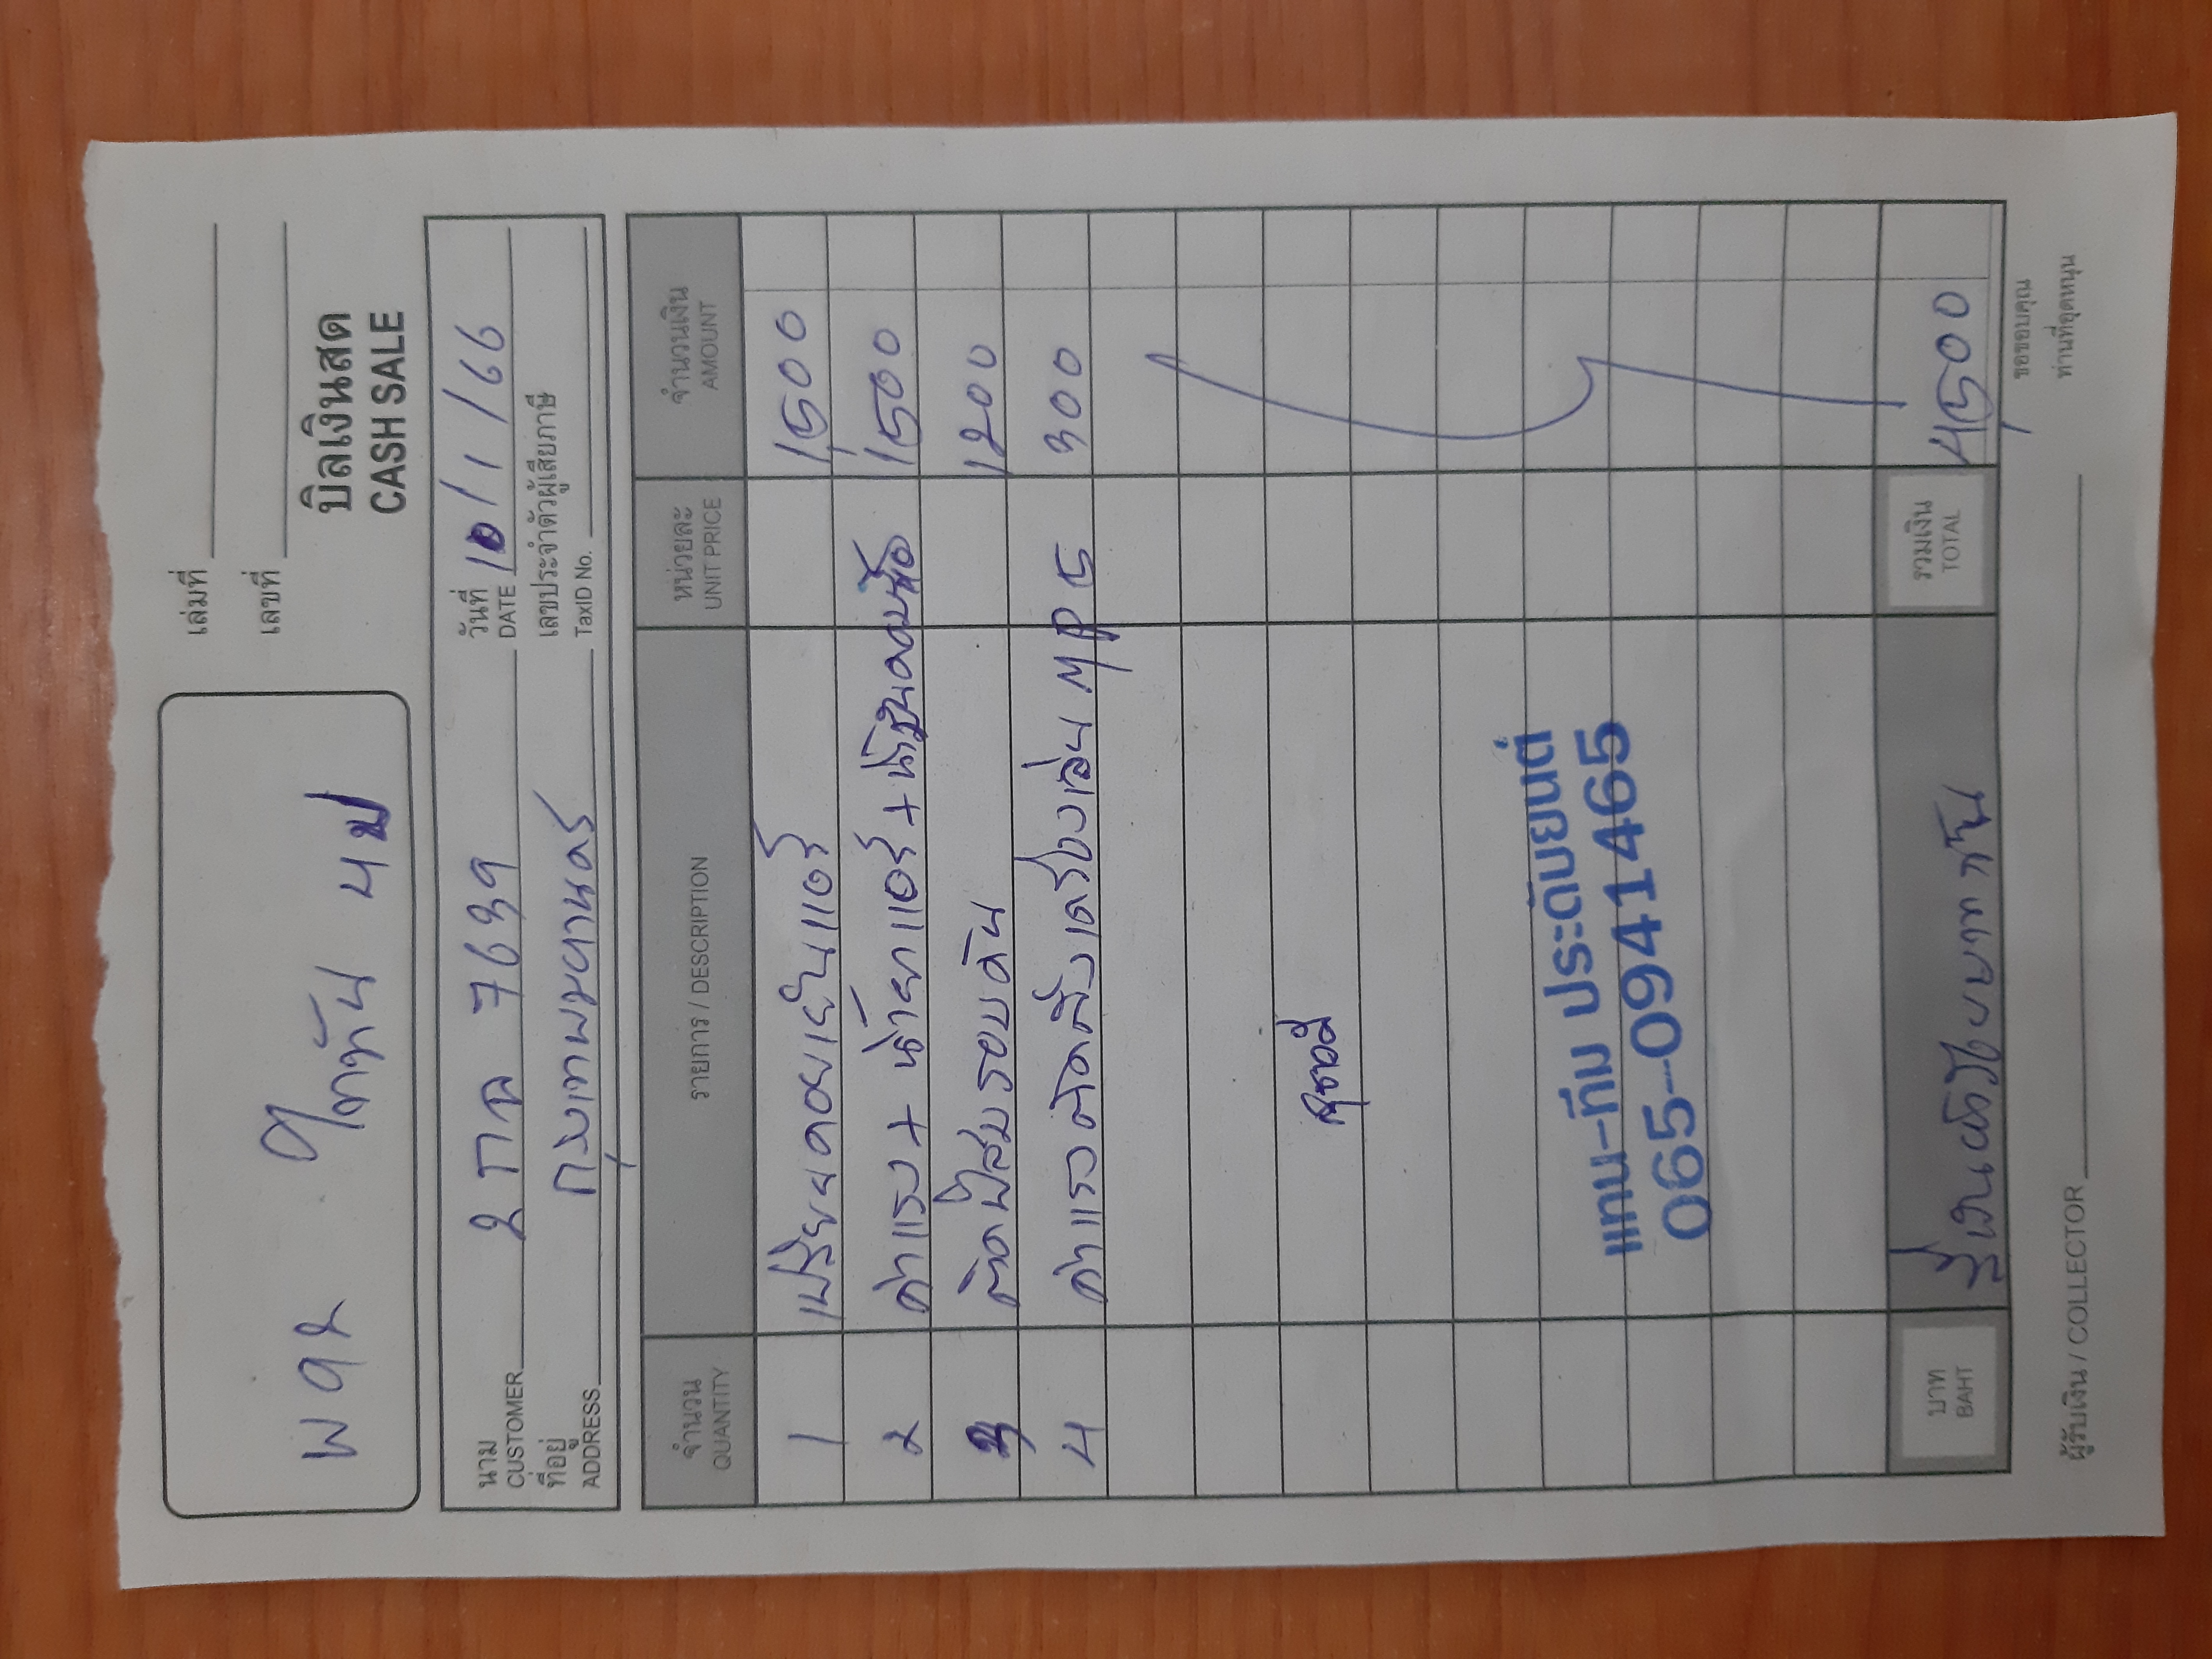 เล่มที่
เลขที่
พจร ไททัน 4ป
บิลเงินสด
CASH SALE
นาม
CUSTOMER 2 กจ 7639
วันที่
DATE 10/1/66
ที่อยู่
ADDRESS กรุงเทพมหานคร
เลขประจำตัวผู้เสียภาษี
TaxID No.
จำนวน
QUANTITY
รายการ / DESCRIPTION
หน่วยละ
UNIT PRICE
จำนวนเงิน
AMOUNT
1 คอยเย็นแอร์ 1500
2 ค่าแรง + น้ำยาแอร์ + น้ำมันคอม 1500
3 รอบคัน 1200
4 ค่าแรงติดตั้งเครื่องเล่น MP5 300
แทน-ทีม ประดับยนต์
065-0941465
บาท
BAHT
สี่พันห้าร้อยบาทถ้วน
รวมเงิน
TOTAL
4,500
ผู้รับเงิน / COLLECTOR
ขอขอบคุณ
ท่านที่อุดหนุน